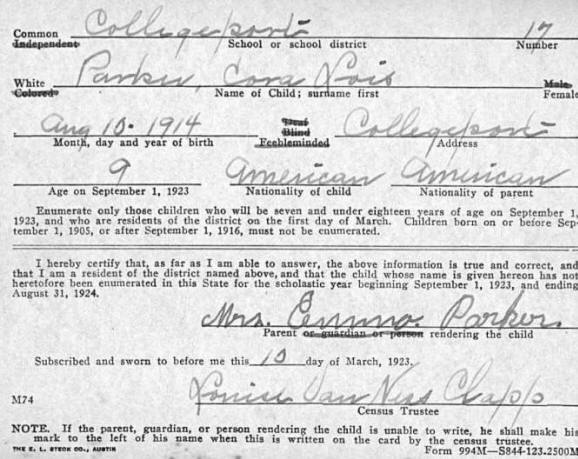 Common Collegeport 17
Independent School or school district Number
White Parker, Cora Lois Male
Colored Name of Child; surname first Female
Deaf
Aug 10-1914 Blind Collegeport
Month, day and year of birth Feebleminded Address
9 American American
Age on September 1, 1923 Nationality of child Nationality of parent
Enumerate only those children who will be seven and under eighteen years of age on September 1,
1923, and who are residents of the district on the first day of March. Children born on or before Sep-
tember 1, 1905, or after September 1, 1916, must not be enumerated.
I hereby certify that, as far as I am able to answer, the above information is true and correct, and
that I am a resident of the district named above, and that the child whose name is given hereon has not
heretofore been enumerated in this State for the scholastic year beginning September 1, 1923, and ending
August 31, 1924.
Mrs. Emma Parker.
Parent or guardian or person rendering the child
Subscribed and sworn to before me this 10 day of March, 1923.
Louise Van Ness Clapp
M74 Census Trustee
NOTE. If the parent, guardian, or person rendering the child is unable to write, he shall make his
mark to the left of his name when this is written on the card by the census trustee.
THE E. L. STECK CO., AUSTIN Form 994M—S844-123.2500M